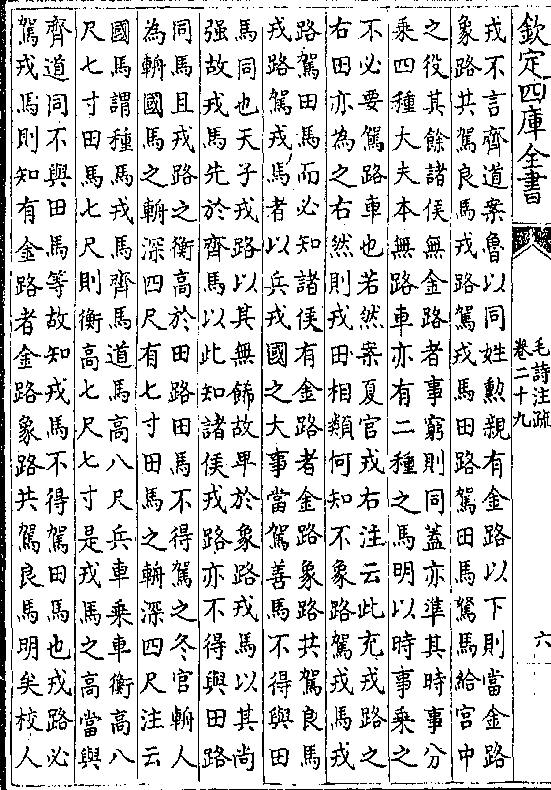 欽定四庫全書
毛詩注疏
卷二十九
六
戎不言齊道案魯以同姓勲親有金路以下則當金路
象路共駕良馬戎路駕戎馬田路駕田馬駑馬給宫中
之役其餘諸侯無金路者事窮則同蓋亦準其時事分
乘四種大夫本無路車亦有二種之馬明以時事乘之
不必要駕路車也若然案夏官戎右注云此充戎路之
右田亦為之右然則戎田相類何知不象路駕戎馬戎
路駕田馬而必知諸侯有金路者金路象路共駕良馬
戎路駕戎馬者以兵戎國之大事當駕善馬不得與田
馬同也天子戎路以其無飾故卑於象路戎馬以其尚
强故戎馬先於齊馬以此知諸侯戎路亦不得與田路
同馬且戎路之衡高於田路田馬不得駕之冬官輈人
為輈國馬之輈深四尺有七寸田馬之輈深四尺注云
國馬謂種馬戎馬齊馬道馬高八尺兵車乘車衡高八
尺七寸田馬七尺則衡高七尺七寸是戎馬之高當與
齊道同不與田馬等故知戎馬不得駕田馬也戎路必
駕戎馬則知有金路者金路象路共駕良馬明矣校人